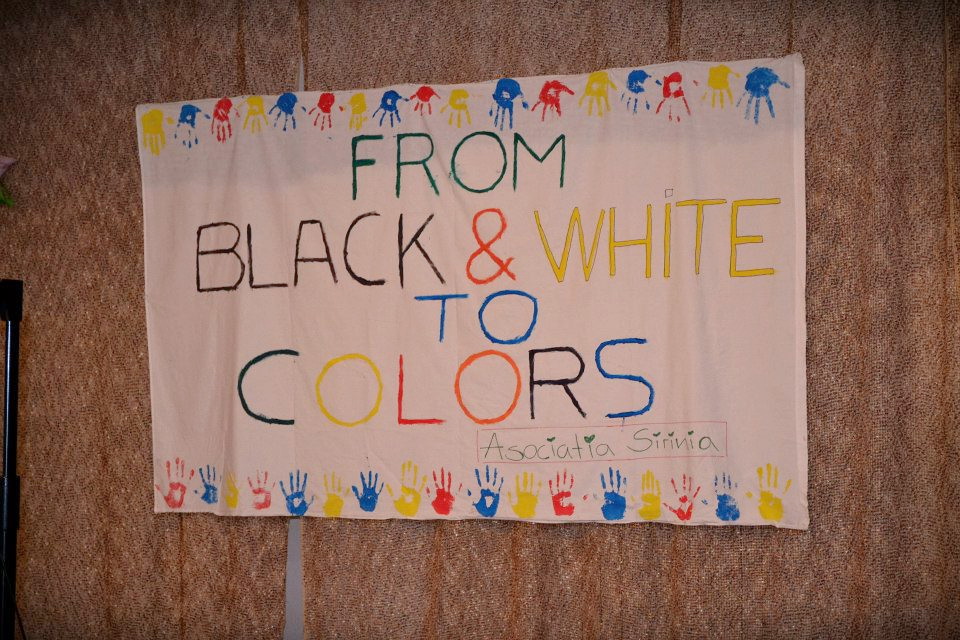 FROM
BLACK & WHITE
TO
COLORS
Asociatia Sirinia